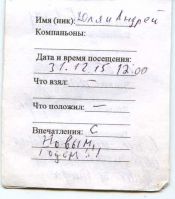 Имя (ник): Юля и Андрей
Компаньоны:
Дата и время посещения:
31.12.15 12:00
Что взял: —
Что положил: —
Впечатления: С
Новым
годом!!